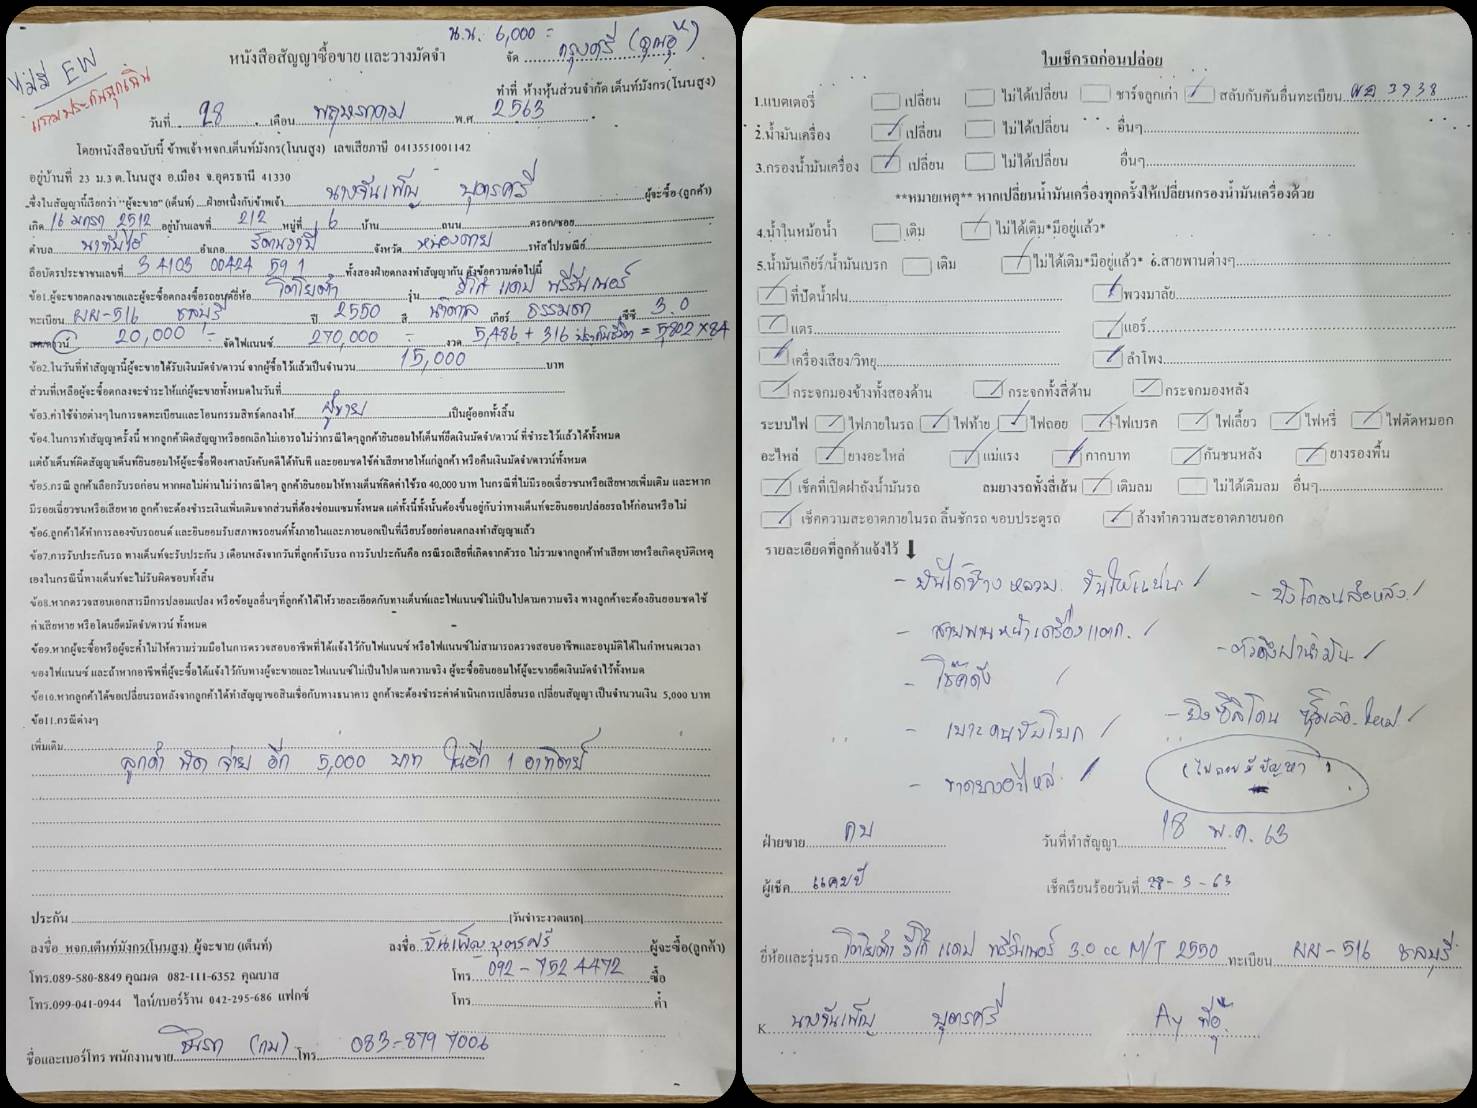 น.น. 6,000 =
หนังสือสัญญาซื้อขาย และวางมัดจำ
จัด กรุงศรี (คุณอุ้)
ไม่มี EW
แถมประกันฉุกเฉิน
ทำที่ ห้างหุ้นส่วนจำกัด เต็นท์มังกร(โนนสูง)
วันที่ 28 เดือน พฤษภาคม พ.ศ. 2563
โดยหนังสือฉบับนี้ ข้าพเจ้า หจก.เต็นท์มังกร(โนนสูง) เลขเสียภาษี 0413551001142
อยู่บ้านที่ 23 ม.3 ต.โนนสูง อ.เมือง จ.อุดรธานี 41330
ซึ่งในสัญญานี้เรียกว่า "ผู้จะขาย" (เต็นท์) ฝ่ายหนึ่งกับข้าพเจ้า นางจันเพ็ญ บุตรศรี ผู้จะซื้อ (ลูกค้า)
เกิด 16 มกรา 2512 อยู่บ้านเลขที่ 212 หมู่ที่ 6 บ้าน ถนน ตรอก/ซอย
ตำบล นาทับไฮ อำเภอ รัตนวาปี จังหวัด หนองคาย รหัสไปรษณีย์
ถือบัตรประชาชนเลขที่ 3 4103 00424 59 1 ทั้งสองฝ่ายตกลงทำสัญญากัน ดังข้อความต่อไปนี้
ข้อ1.ผู้จะขายตกลงขายและผู้จะซื้อตกลงซื้อรถยนต์ยี่ห้อ โตโยต้า รุ่น วีโก้ แคป พรีรันเนอร์
ทะเบียน ผผ-516 ชลบุรี ปี 2550 สี น้ำตาล เกียร์ ธรรมดา ซีซี 3.0
ดาวน์ 20,000 จัดไฟแนนซ์ 270,000 งวด 5,486 + 316 ประกันชีวิต = 5,802 x 84
ข้อ2.ในวันที่ทำสัญญานี้ผู้จะขายได้รับเงินมัดจำ/ดาวน์ จากผู้ซื้อไว้แล้วเป็นจำนวน 15,000 บาท
ส่วนที่เหลือผู้จะซื้อตกลงจะชำระให้แก่ผู้จะขายทั้งหมดในวันที่
ข้อ3.ค่าใช้จ่ายต่างๆ ในการจดทะเบียนและโอนกรรมสิทธิ์ตกลงให้ ผู้ขาย เป็นผู้ออกทั้งสิ้น
ข้อ4.ในการทำสัญญาครั้งนี้ หากลูกค้าผิดสัญญาหรือยกเลิกไม่เอารถ ไม่ว่ากรณีใดๆลูกค้ายินยอมให้เต็นท์ยึดเงินมัดจำ/ดาวน์ ที่ชำระไว้แล้วได้ทั้งหมด
แต่ถ้าเต็นท์ผิดสัญญาเต็นท์ยินยอมให้ผู้จะซื้อฟ้องศาลบังคับคดีได้ทันที และยอมชดใช้ค่าเสียหายให้แก่ลูกค้า หรือคืนเงินมัดจำ/ดาวน์ทั้งหมด
ข้อ5.กรณี ลูกค้าเลือกรับรถก่อน หากผลไม่ผ่านไม่ว่ากรณีใดๆ ลูกค้ายินยอมให้ทางเต็นท์คิดค่าใช้รถ 40,000 บาท ในกรณีที่ไม่มีรอยเฉี่ยวชนหรือเสียหายเพิ่มเติม และหาก
มีรอยเฉี่ยวชนหรือเสียหาย ลูกค้าจะต้องชำระเงินเพิ่มเติมจากส่วนที่ต้องซ่อมแซมทั้งหมด แต่ทั้งนี้ทั้งนั้นต้องขึ้นอยู่กับว่าทางเต็นท์จะยินยอมปล่อยรถให้ก่อนหรือไม่
ข้อ6.ลูกค้าได้ทำการลองขับรถยนต์ และยินยอมรับสภาพรถยนต์ทั้งภายในและภายนอกเป็นที่เรียบร้อยก่อนตกลงทำสัญญาแล้ว
ข้อ7.การรับประกันรถ ทางเต็นท์จะรับประกัน 3 เดือนหลังจากวันที่ลูกค้ารับรถ การรับประกันคือ กรณีรถเสียที่เกิดจากตัวรถ ไม่รวมจากลูกค้าทำเสียหายหรือเกิดอุบัติเหตุ
เองในกรณีนี้ทางเต็นท์จะไม่รับผิดชอบทั้งสิ้น
ข้อ8.หากตรวจสอบเอกสารมีการปลอมแปลง หรือข้อมูลอื่นๆที่ลูกค้าได้ให้รายละเอียดกับทางเต็นท์และไฟแนนซ์ไม่เป็นไปตามความจริง ทางลูกค้าจะต้องยินยอมชดใช้
ค่าเสียหาย หรือโดนยึดมัดจำ/ดาวน์ ทั้งหมด
ข้อ9.หากผู้จะซื้อหรือผู้จะค้ำไม่ให้ความร่วมมือในการตรวจสอบอาชีพที่ได้แจ้งไว้กับไฟแนนซ์ หรือไฟแนนซ์ไม่สามารถตรวจสอบอาชีพและอนุมัติได้ในกำหนดเวลา
ของไฟแนนซ์ และถ้าหากอาชีพที่ผู้จะซื้อได้แจ้งไว้กับทางผู้จะขายและไฟแนนซ์ไม่เป็นไปตามความจริง ผู้จะซื้อยินยอมให้ผู้จะขายยึดเงินมัดจำไว้ทั้งหมด
ข้อ10.หากลูกค้าได้ขอเปลี่ยนรถหลังจากลูกค้าได้ทำสัญญาขอสินเชื่อกับทางธนาคาร ลูกค้าจะต้องชำระค่าดำเนินการเปลี่ยนรถ เปลี่ยนสัญญา เป็นจำนวนเงิน 5,000 บาท
ข้อ11.กรณีต่างๆ
เพิ่มเติม ลูกค้า ติด จ่าย อีก 5,000 บาท ในอีก 1 อาทิตย์
ประกัน (วันชำระงวดแรก)
ลงชื่อ หจก.เต็นท์มังกร(โนนสูง) ผู้จะขาย (เต็นท์) ลงชื่อ จันเพ็ญ บุตรศรี ผู้จะซื้อ(ลูกค้า)
โทร.089-580-8849 คุณมด 082-111-6352 คุณบาส โทร. 092-752 4472 ซื้อ
โทร.099-041-0944 ไลน์/เบอร์ร้าน 042-295-686 แฟกซ์ โทร. ค้ำ
ชื่อและเบอร์โทร พนักงานขาย (กบ) โทร 083-879 7006
ใบเช็ครถก่อนปล่อย
1.แบตเตอรี่ เปลี่ยน ไม่ได้เปลี่ยน ชาร์จลูกเก่า สลับกับคันอื่นทะเบียน 3938
2.น้ำมันเครื่อง เปลี่ยน ไม่ได้เปลี่ยน อื่นๆ
3.กรองน้ำมันเครื่อง เปลี่ยน ไม่ได้เปลี่ยน อื่นๆ
**หมายเหตุ** หากเปลี่ยนน้ำมันเครื่องทุกครั้งให้เปลี่ยนกรองน้ำมันเครื่องด้วย
4.น้ำในหม้อน้ำ เติม ไม่ได้เติม*มีอยู่แล้ว*
5.น้ำมันเกียร์/น้ำมันเบรก เติม ไม่ได้เติม*มีอยู่แล้ว* 6.สายพานต่างๆ
ที่ปัดน้ำฝน พวงมาลัย
แตร แอร์
เครื่องเสียง/วิทยุ ลำโพง
กระจกมองข้างทั้งสองด้าน กระจกทั้งสี่ด้าน กระจกมองหลัง
ระบบไฟ ไฟภายในรถ ไฟท้าย ไฟถอย ไฟเบรค ไฟเลี้ยว ไฟหรี่ ไฟตัดหมอก
อะไหล่ ยางอะไหล่ แม่แรง กากบาท กันชนหลัง ยางรองพื้น
เช็คที่เปิดฝาถังน้ำมันรถ ลมยางรถทั้งสี่เส้น เติมลม ไม่ได้เติมลม อื่นๆ
เช็คความสะอาดภายในรถ ลิ้นชักรถ ขอบประตูรถ ล้างทำความสะอาดภายนอก
รายละเอียดที่ลูกค้าแจ้งไว้
- บันไดข้าง หลวม ขันให้แน่น
- สายพานหน้าเครื่องแตก
- โช๊คดัง
- เบาะคนขับโยก
- ขาดยางอะไหล่
(ไฟถอยมีปัญหา)
ฝ่ายขาย กบ วันที่ทำสัญญา 28 พ.ค. 63
ผู้เช็ค แคมป์ เช็คเรียบร้อยวันที่ 28-5-63
ยี่ห้อและรุ่นรถ โตโยต้า วีโก้ แคป พรีรันเนอร์ 3.0 cc M/T 2550 ทะเบียน ผผ-516 ชลบุรี
K นางจันเพ็ญ บุตรศรี Ay พี่อุ้